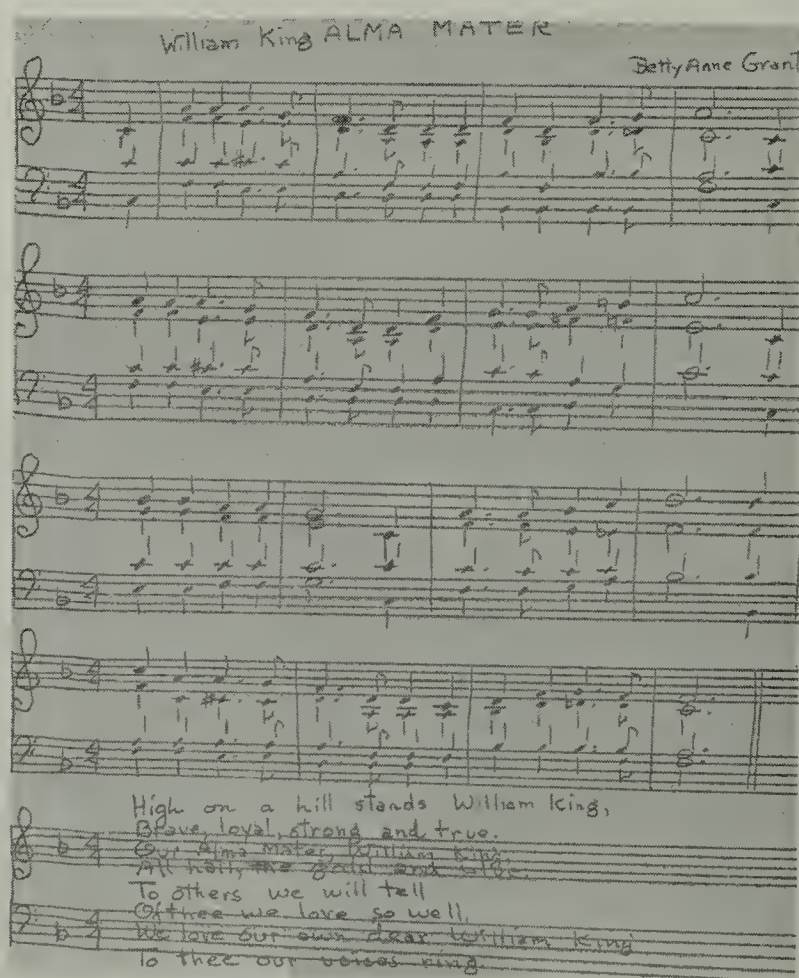 William King ALMA MATER
Betty Anne Grant
High on a hill stands William King,
Brave, loyal, strong and true.
Our Alma Mater, William King,
All hail, the gold and blue.
To others we will tell
Of thee we love so well,
We love our own dear William King
To thee our voices ring